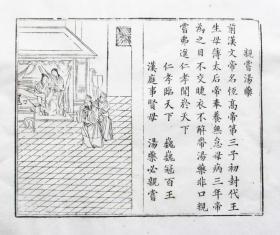 親嘗湯藥
前漢文帝名恆高帝第三子初封代王
生母薄太后帝奉養無怠母病三年帝
為之目不交睫衣不解帶湯藥非口親
嘗弗進仁孝聞於天下
仁孝臨天下　巍巍冠百王
漢庭事賢母　湯藥必親嘗